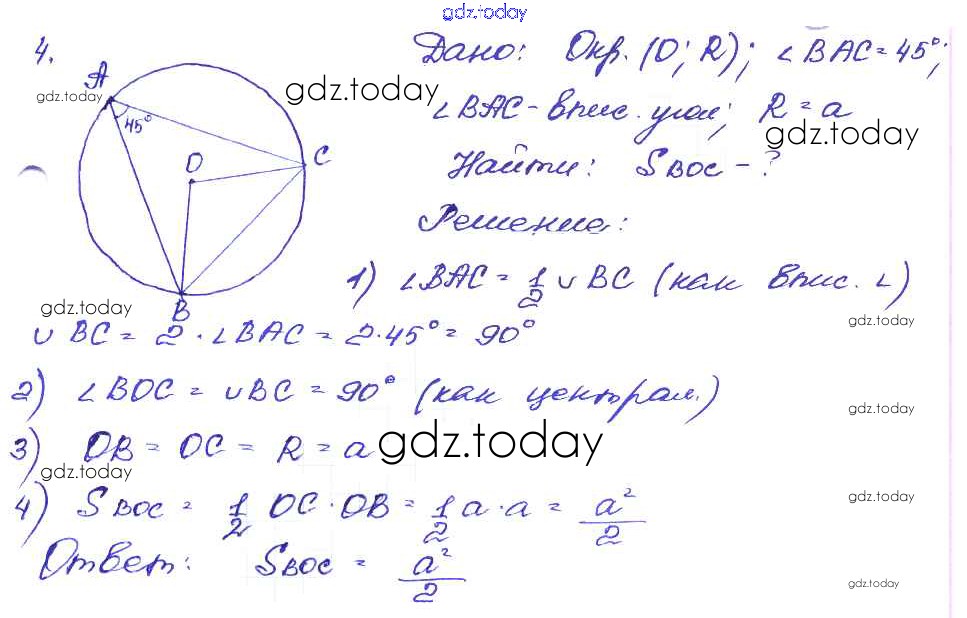 gdz.today
4.
Дано: Окр.(О; R); ∠BAC = 45°;
A
gdz.today
gdz.today
45°
∠BAC - впис. угол; R = a
gdz.today
O
C
Найти: S BOC - ?
Решение:
1) ∠BAC = 1/2 ∪ BC (как впис. ∠)
gdz.today
B
gdz.today
∪ BC = 2 · ∠BAC = 2·45° = 90°
2) ∠BOC = ∪BC = 90° (как централ.)
gdz.today
3) OB = OC = R = a
gdz.today
gdz.today
4) S BOC = 1/2 OC · OB = 1/2 a · a = a²/2
gdz.today
Ответ: S BOC = a²/2
gdz.today